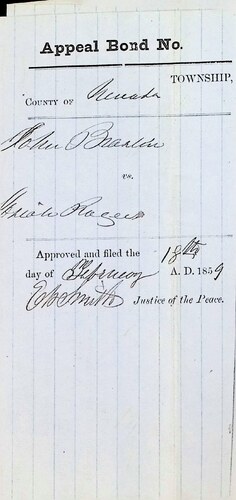 Appeal Bond No.
TOWNSHIP,
COUNTY OF Nevada
John Braslin
vs.
Isaiah Rogers
Approved and filed the 18th
day of February A. D. 1859
E W Smith Justice of the Peace.